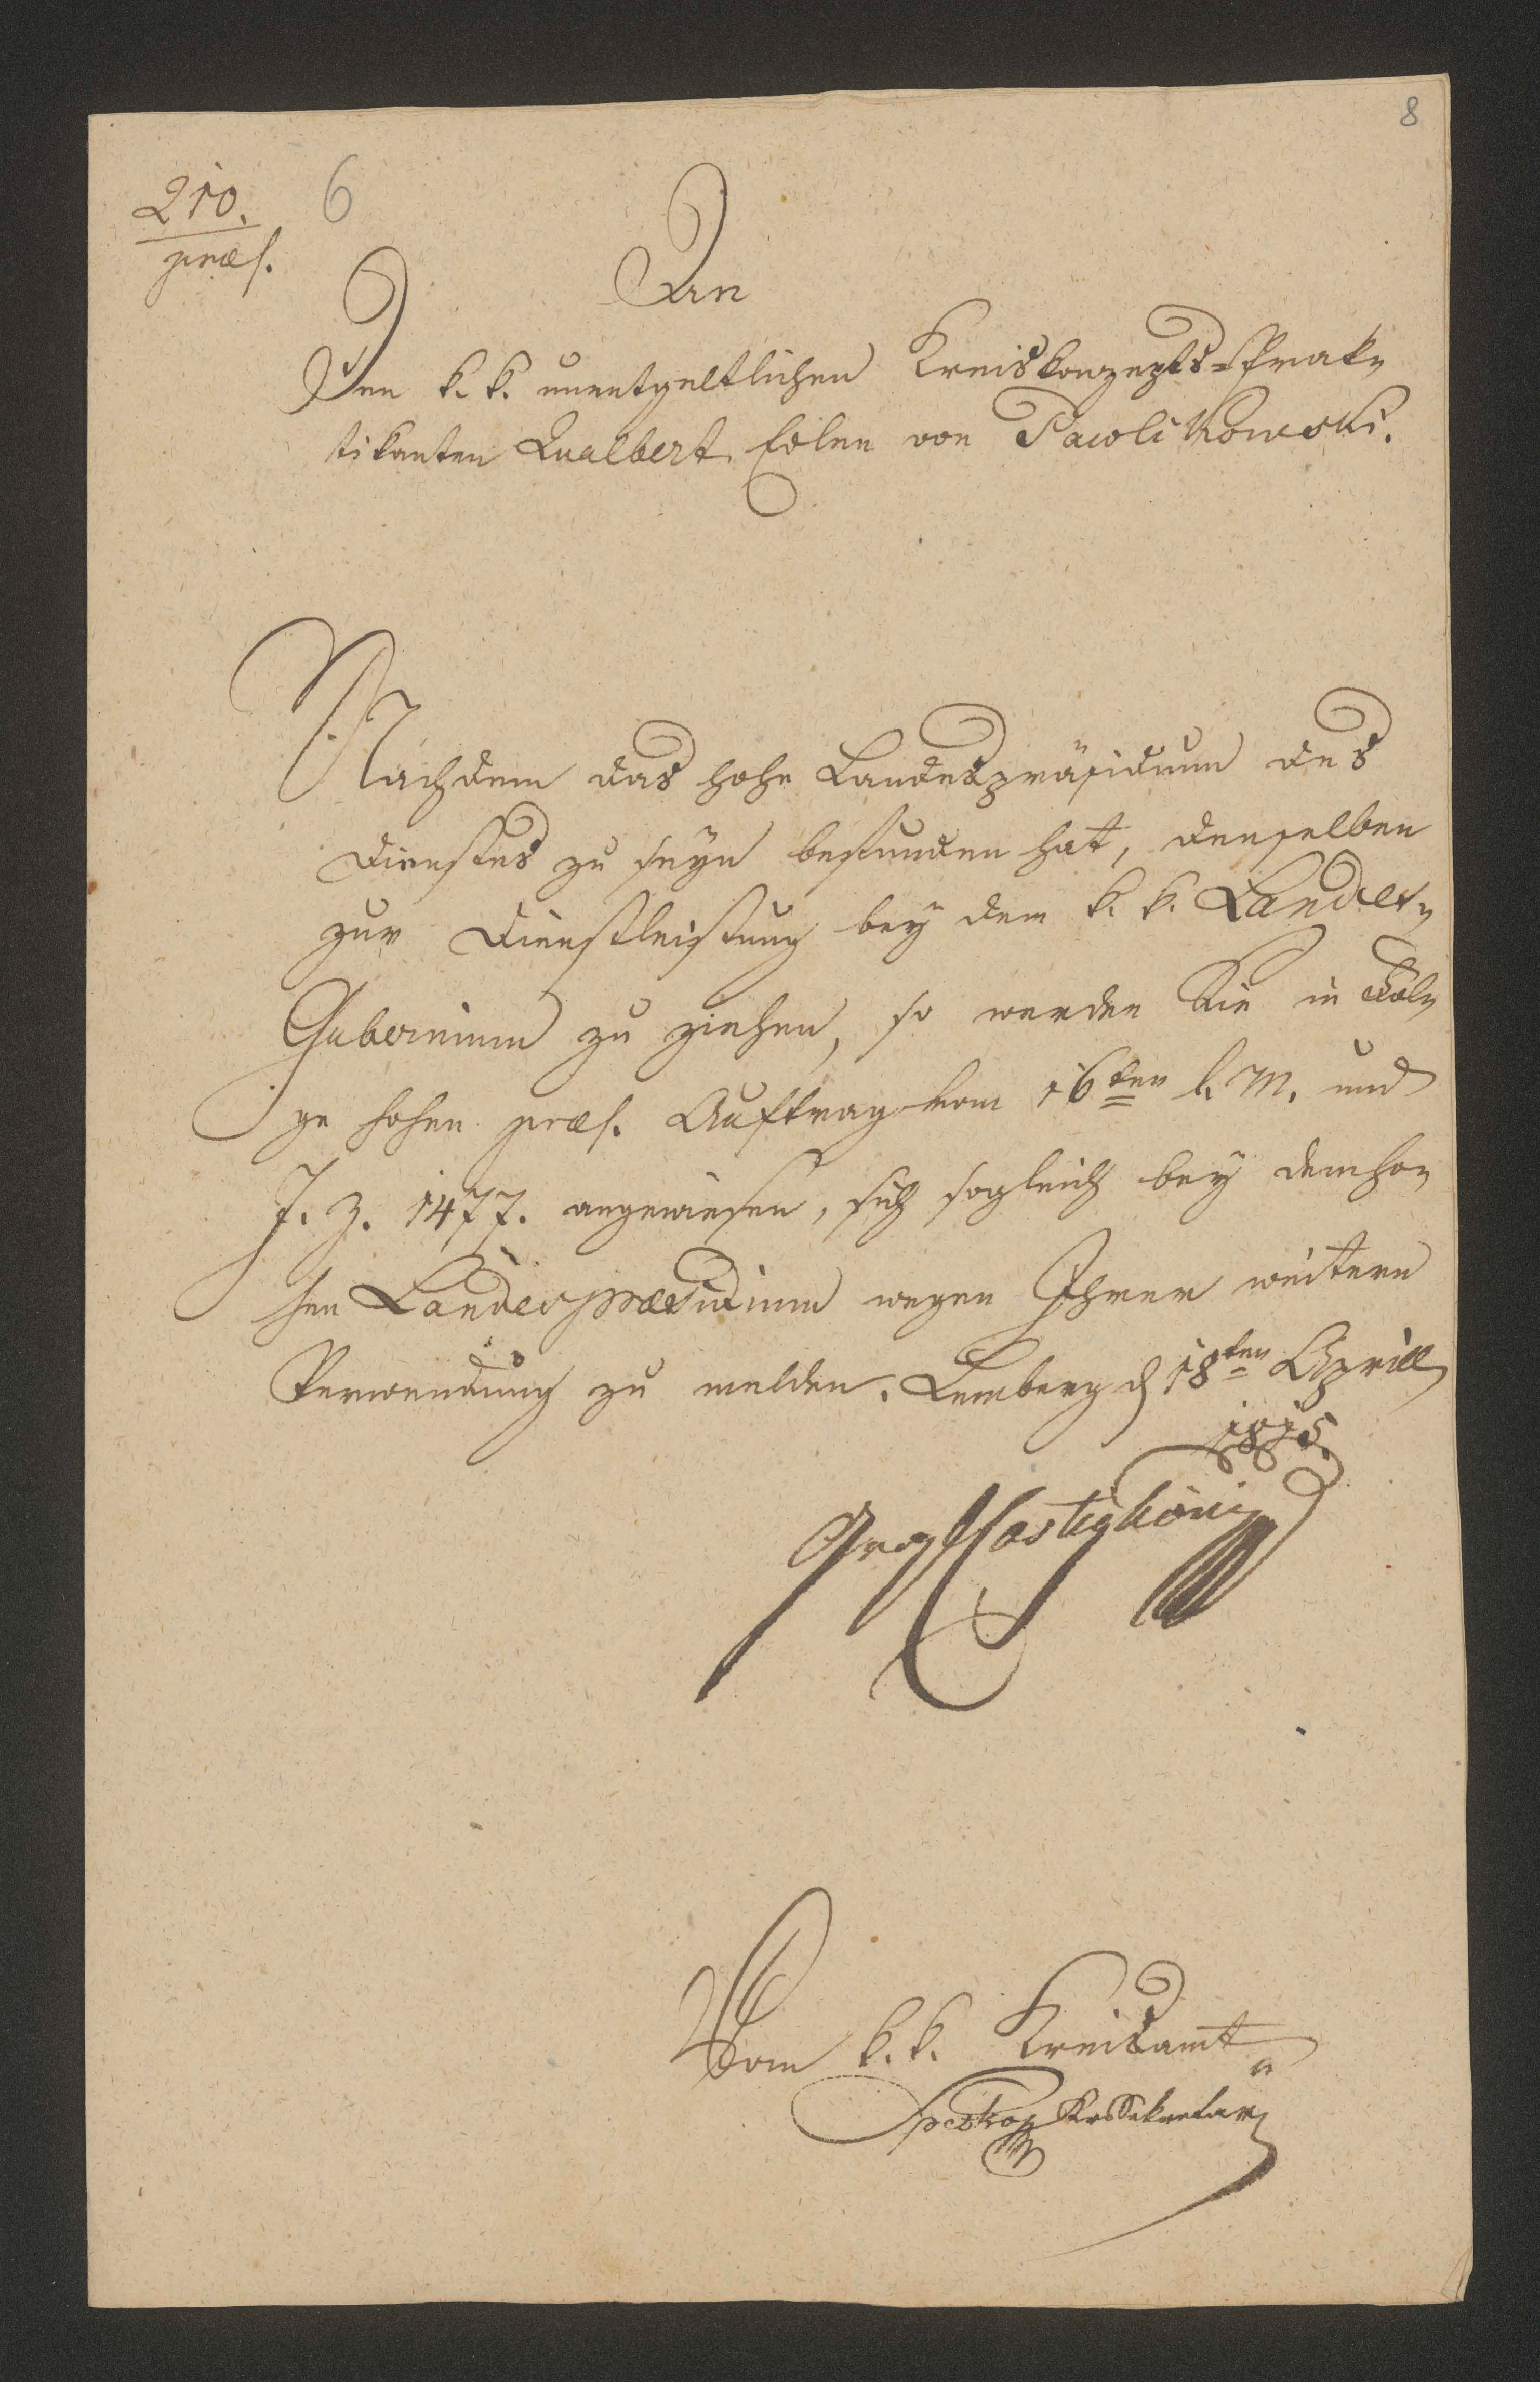 8
210. 6
præs.
An
Den k. k. unentgeltlichen Kreiskonzepts-Prak-
tikanten Qualbert Edlen von Pawlikowski.
Nachdem das hohe Landespräsidium des
Dienstes zu seyn befunden hat, denselben
zur Dienstleistung bey dem k. k. Landes-
Gubernium zu ziehen, so werden Sie in Fol-
ge hohen præs. Auftrag vom 16ten l. M. und
J. Z. 1477. angewiesen, sich sogleich bey dem ho-
hen Landespræsidium wegen Ihrer weitern
Verwendung zu melden. Lemberg d 18ten Aprill
1815.
Vom k. k. Kreisamt
KrsSekretär